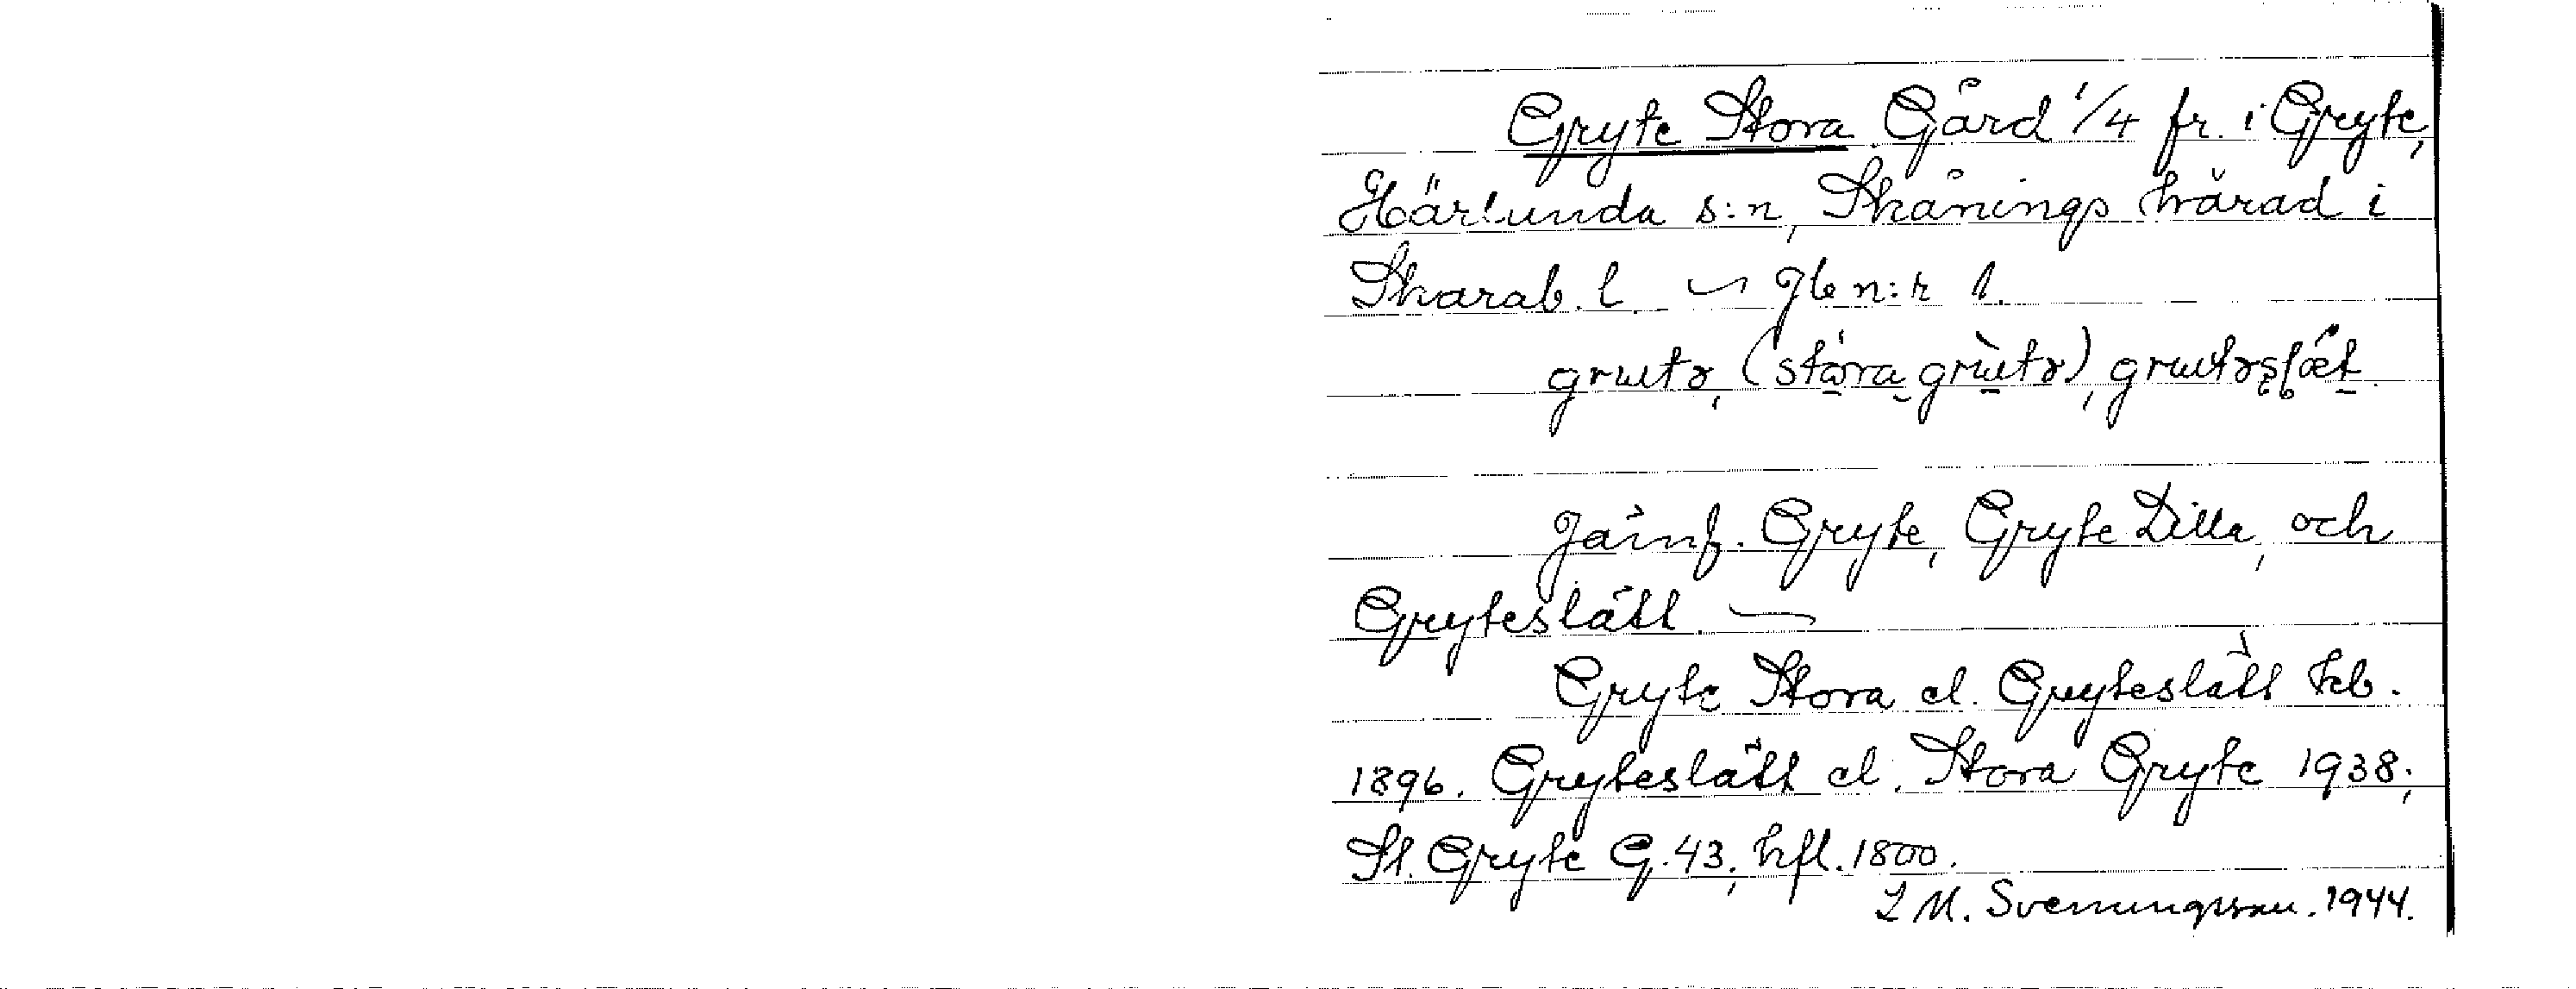 Gryte Stora Gård 1/4 fr. i Gryte,
Härlunda s:n, Skånings härad i
Skarab. l. ~ Jb n:r 1.
Jämf. Gryte, Gryte Lilla, och
Gryteslätt. ~
Gryte Stora el. Gryteslätt kb.
1896. Gryteslätt el. Stora Gryte 1938;
St. Gryte G. 43; hfl. 1800.
L M. Svenungsson. 1944.